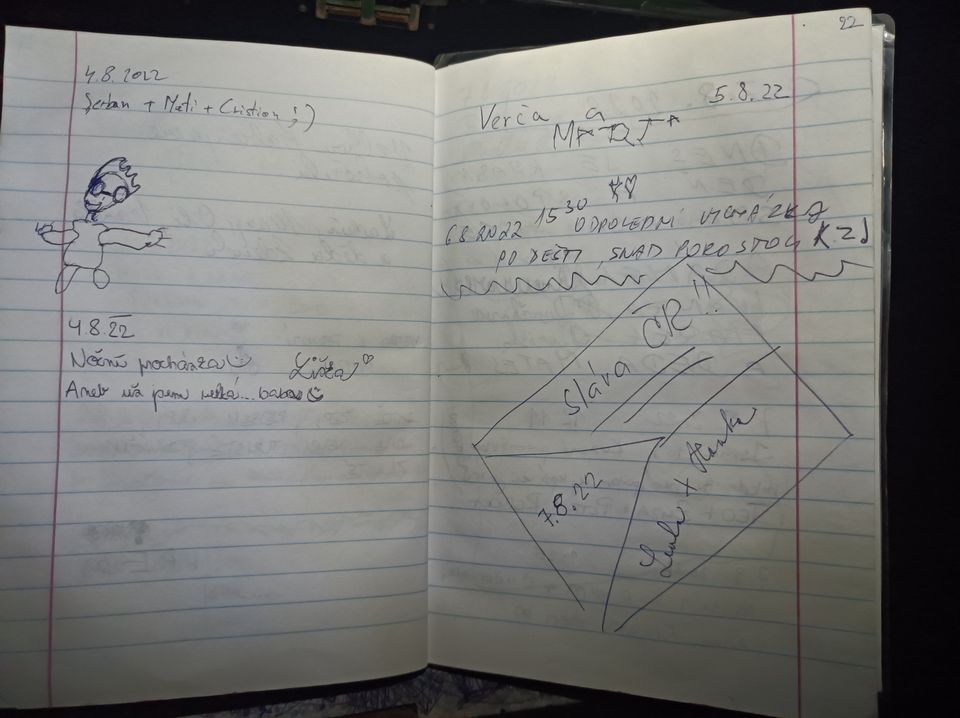 4.8.2022
Șerban + Mati + Cristian ;)
4.8.22
Noční procházka
Líza
Aneb už jsem velká... baba
22
5.8.22
Verča a
MARTA
6.8.2022 15³⁰ ODPOLEDNÍ VYCHÁZKA
PO DEŠTI, SNAD POROSTOU
Sláva ČR!!
7.8.22
Lenka + Hanka